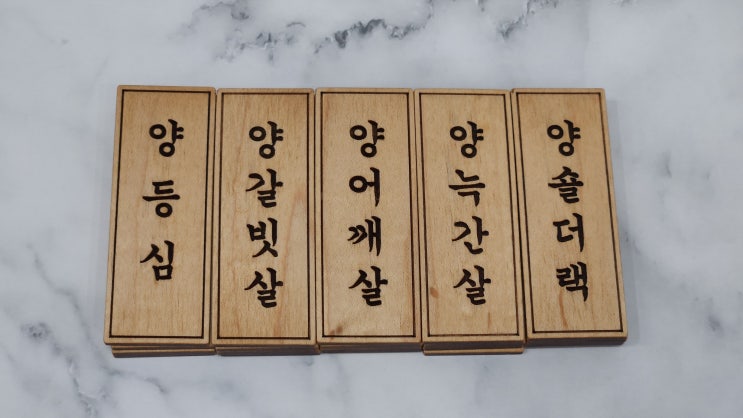 양등심
양갈빗살
양어깨살
양늑간살
양숄더랙